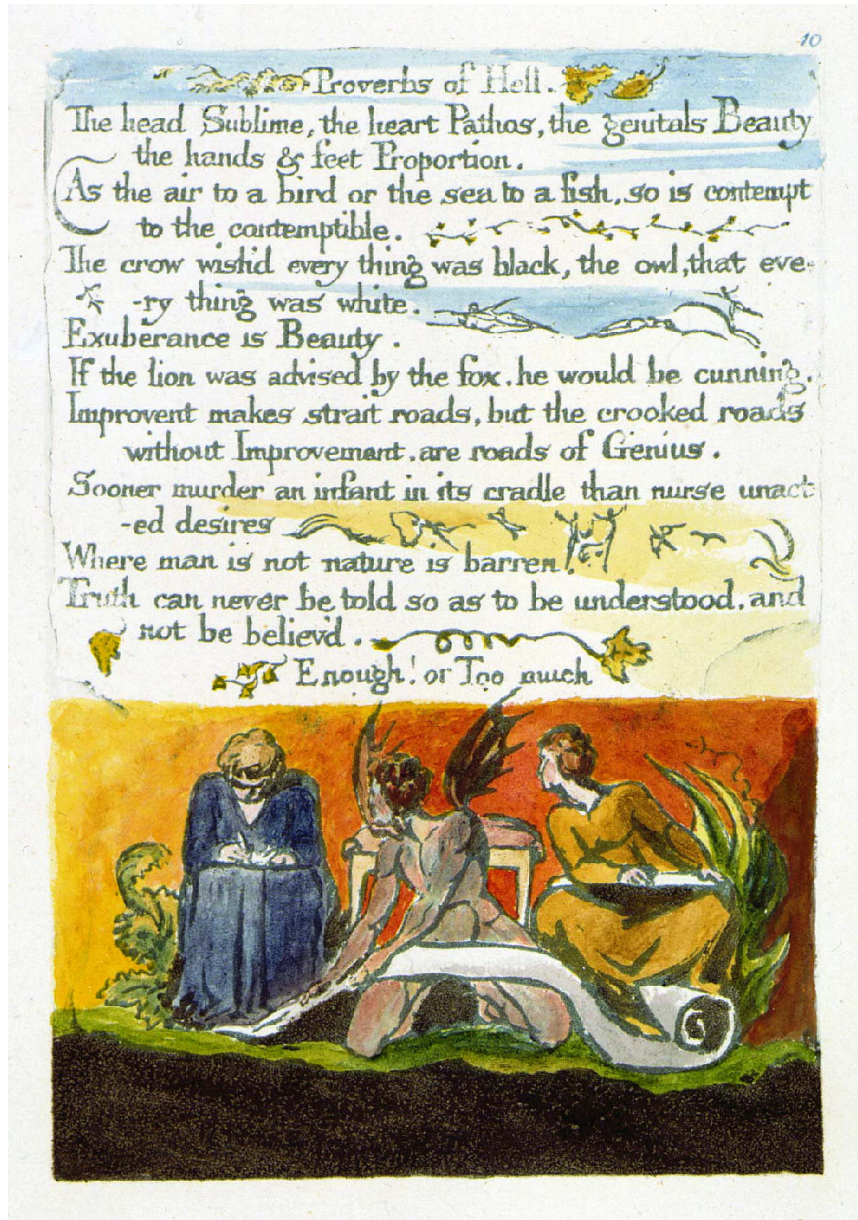 10
Proverbs of Hell.
The head Sublime, the heart Pathos, the genitals Beauty
the hands & feet Proportion.
As the air to a bird or the sea to a fish, so is contempt
to the contemptible.
The crow wish'd every thing was black, the owl, that eve-
-ry thing was white.
Exuberance is Beauty.
If the lion was advised by the fox. he would be cunning.
Improvent makes strait roads, but the crooked roads
without Improvement. are roads of Genius.
Sooner murder an infant in its cradle than nurse unact-
-ed desires
Where man is not nature is barren.
Truth can never be told so as to be understood. and
not be believ'd.
Enough! or Too much